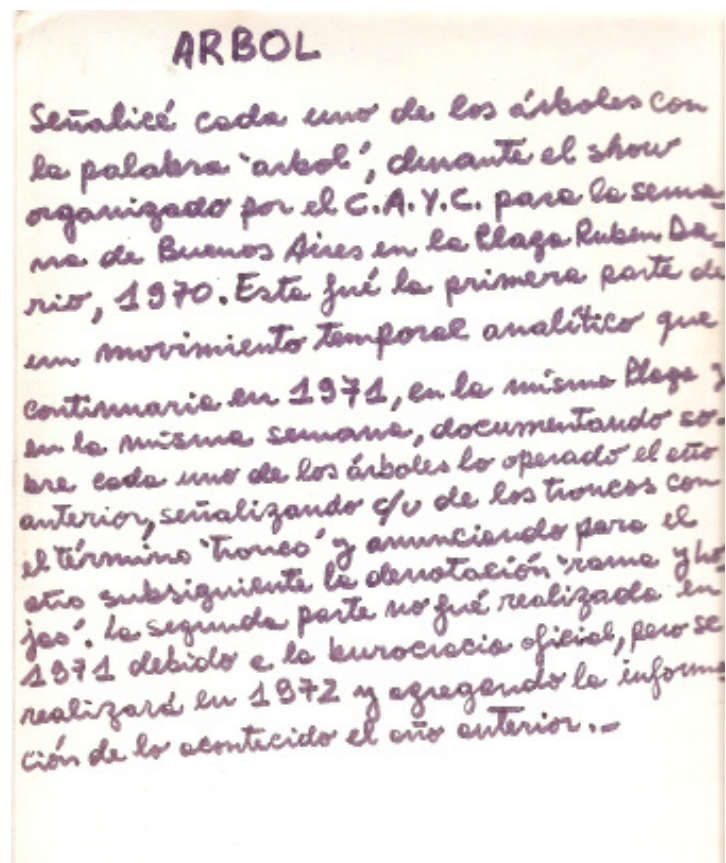 ARBOL
Señalicé cada uno de los árboles con
la palabra "arbol", durante el show
organizado por el C.A.Y.C. para la sema-
na de Buenos Aires en la Plaza Ruben Da-
rio, 1970. Esta fué la primera parte de
un movimiento temporal analítico que
continuaria en 1971, en la misma Plaza y
en la misma semana, documentando so-
bre cada uno de los árboles lo operado el año
anterior, señalizando c/u de los troncos con
el término "tronco" y anunciando para el
año subsiguiente la denotación "rama y ho-
jas". La segunda parte no fué realizada en
1971 debido a la burocracia oficial, pero se
realizará en 1972 y agregando la informa-
ción de lo acontecido el año anterior.-